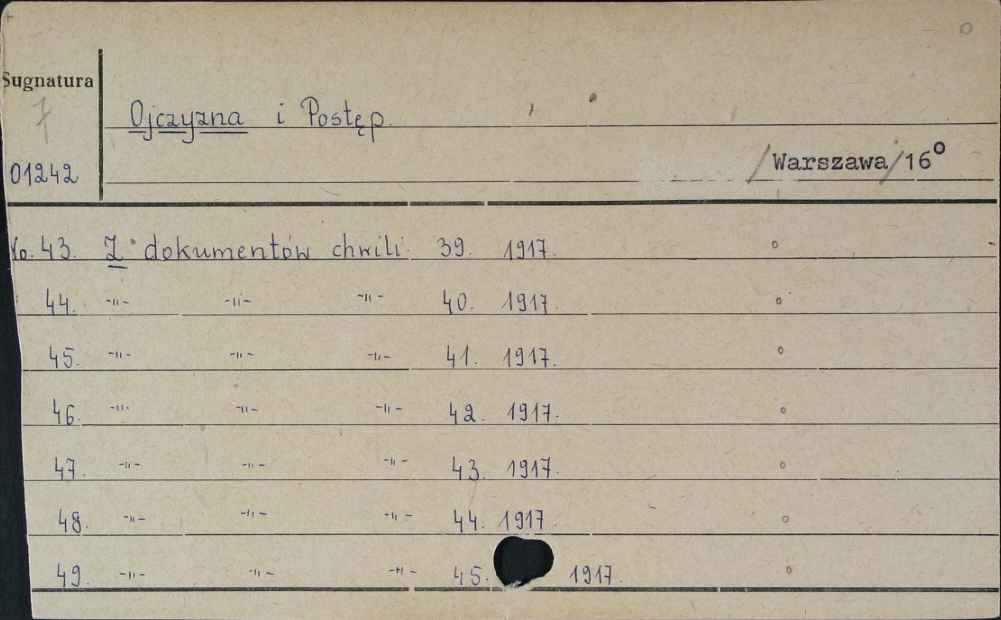 Sugnatura
7
Ojczyzna i Postęp.
01242
/Warszawa/16°
No. 43. Z dokumentów chwili 39. 1917.
44. -"- -"- -"- 40. 1917.
45. -"- -"- -"- 41. 1917.
46. -"- -"- -"- 42. 1917.
47. -"- -"- -"- 43. 1917.
48. -"- -"- -"- 44. 1917.
49. -"- -"- -"- 45. 1917.